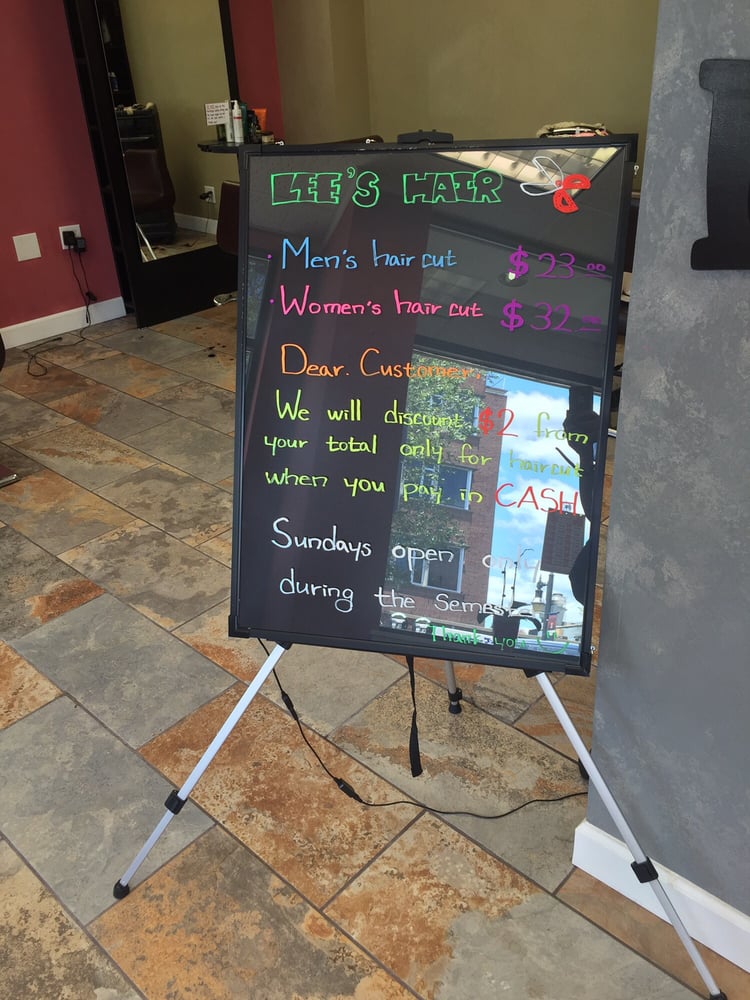 LEE'S HAIR
· Men's hair cut $23.00
· Women's hair cut $32.00
Dear. Customer,
We will discount $2 from
your total only for haircut
when you pay in CASH
Sundays open only
during the Semester
Thank you